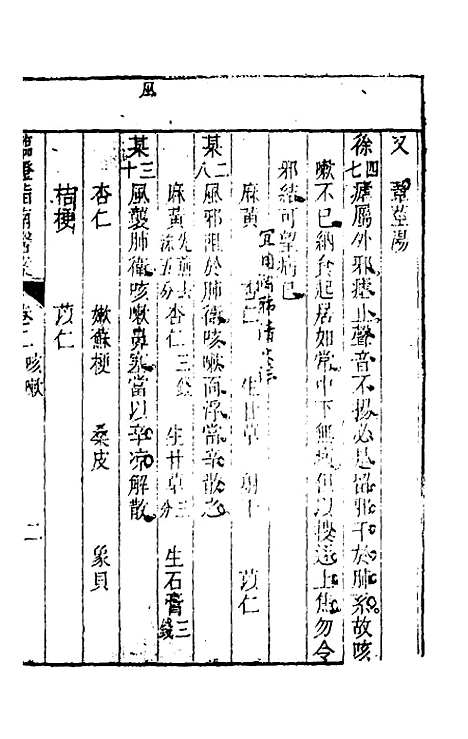 風
又 葦莖湯
徐四七 瘧屬外邪瘧止聲音不揚必是留邪干於肺系故咳
嗽不已納食起居如常中下無病但以搜逐上焦勿令
邪結可望病已
麻黃 杏仁 生甘草 射干 苡仁
某二八 風邪阻於肺衛咳嗽面浮當辛散之
麻黃先煎去沫五分 杏仁三錢 生甘草三分 生石膏三錢
某三十 風襲肺衛咳嗽鼻塞當以辛涼解散
杏仁 嫩蘇梗 桑皮 象貝
桔梗 苡仁
臨證指南醫案 卷二 咳嗽 二